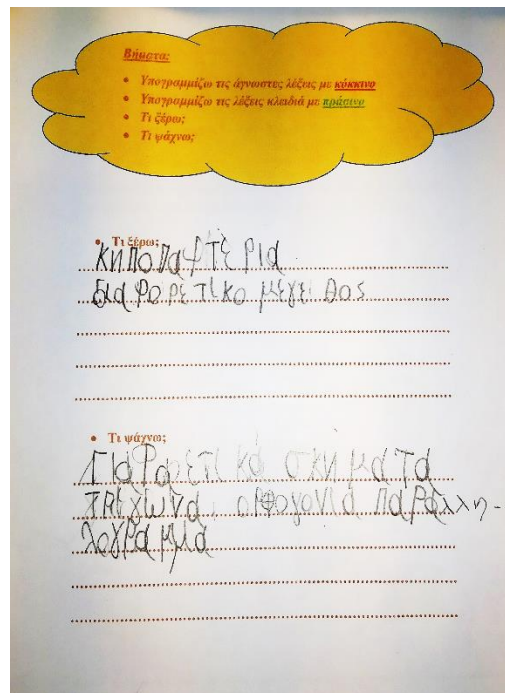 Βήματα:
• Υπογραμμίζω τις άγνωστες λέξεις με κόκκινο
• Υπογραμμίζω τις λέξεις κλειδιά με πράσινο
• Τι ξέρω;
• Τι ψάχνω;
• Τι ξέρω;
κηποπαφτέρια
διαφορετικο μεγειθος
• Τι ψάχνω;
σκηματα
ορθογονια παραλλη-
λογραμμα